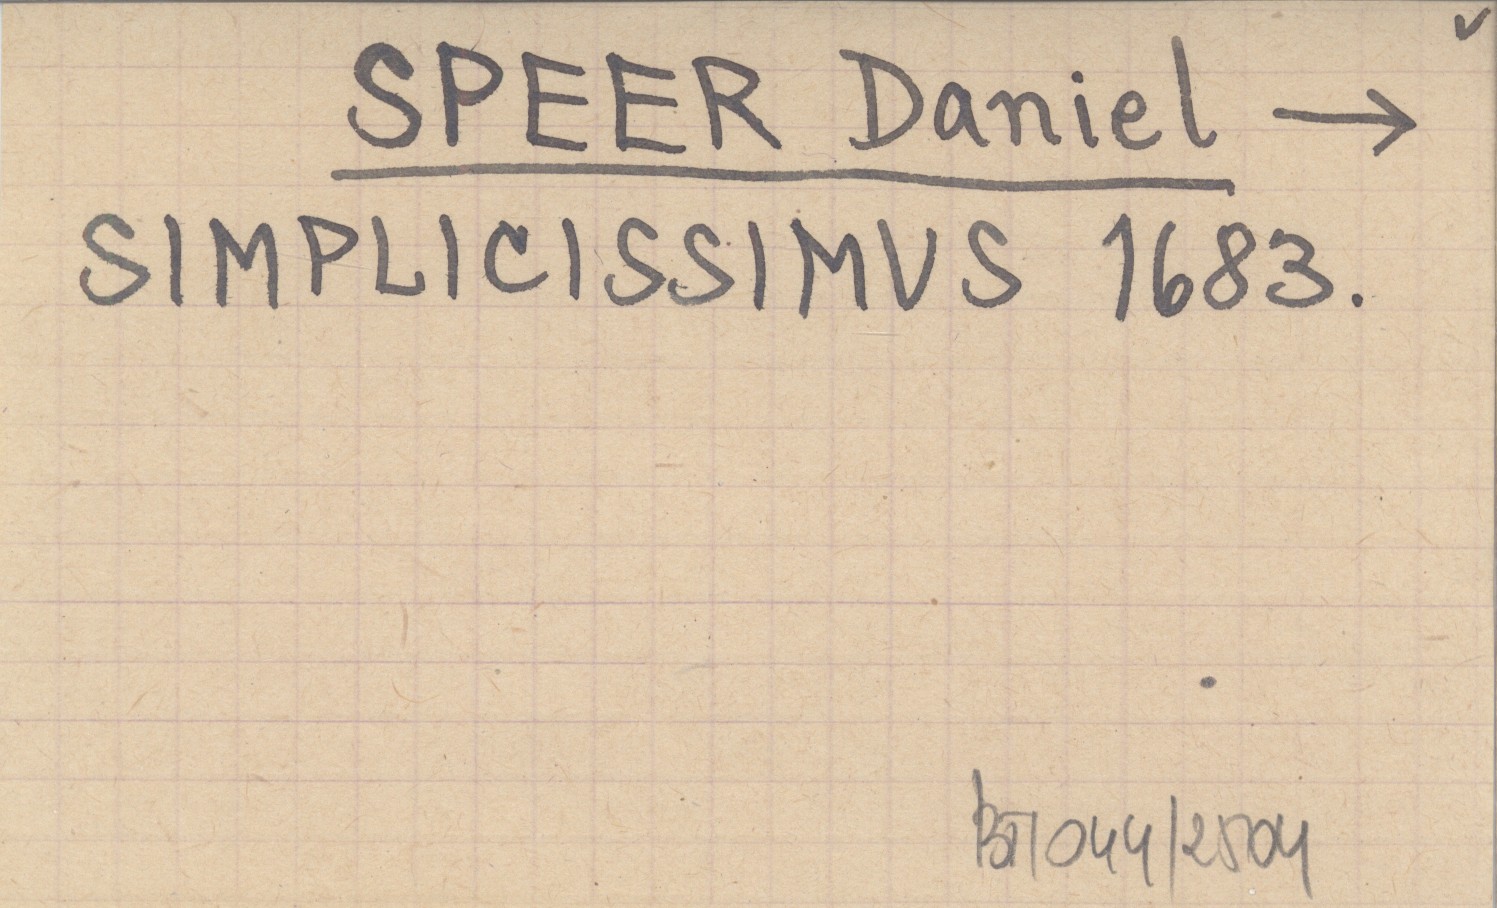 SPEER Daniel →
SIMPLICISSIMVS 1683.
BT/044/2504